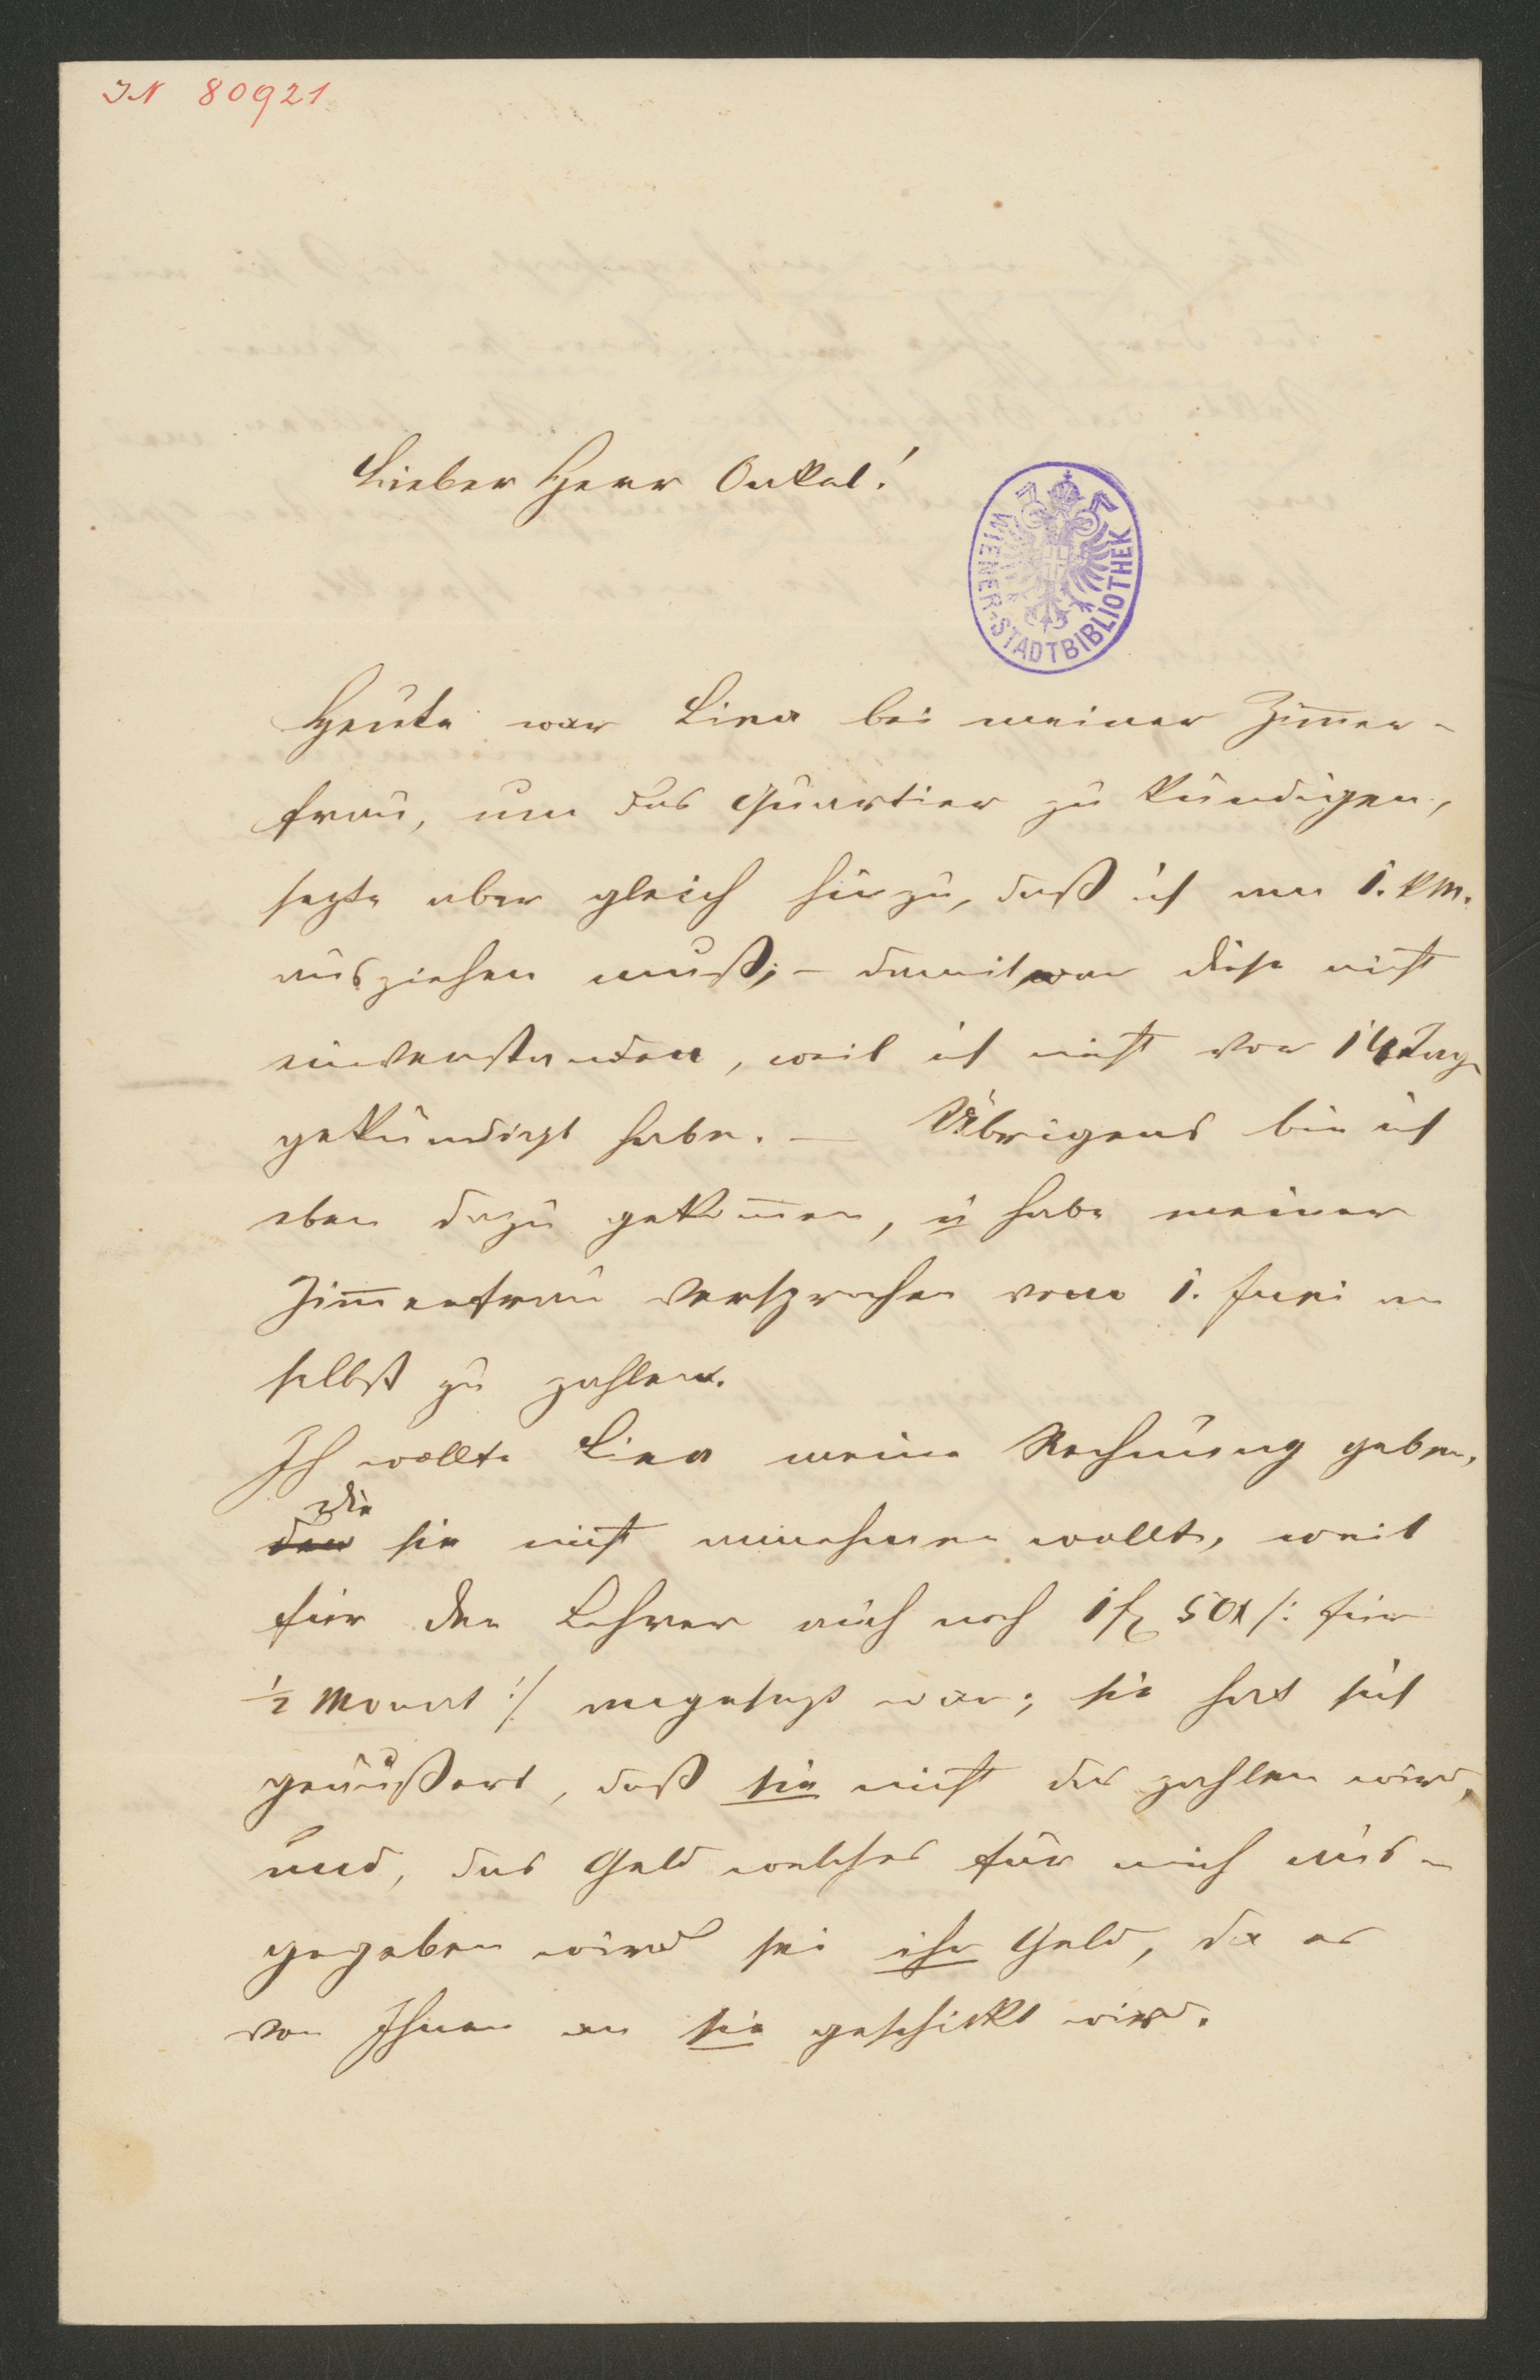 IN 80921
Lieber Herr Onkel!
WIENER-STADTBIBLIOTHEK
Heute war Lina bei meiner Zim̅er-
frau, um das Quartier zu kündigen,
sagte aber gleich hinzu, daß ich am 1. k M.
ausziehen muß; – damit war diese nicht
einverstanden, weil ich nicht vor 14 Tage
gekündigt habe. – Übrigens bin ich
eben dazu gekom̅en, u habe meiner
Zim̅erfrau versprochen vom 1. Juni an
selbst zu zahlen.
Ich wollte Lina meine Rechnung geben,
die
den sie nicht annehmen wollte, weil
für den Lehrer auch noch 1 fl 50 x /: für
½ Monat :/ angesagt war; sie hat sich
geäußert, daß sie nicht das zahlen wird,
und, das Geld welches für mich aus-
gegeben wird sei ihr Geld, da es
von Ihnen an sie geschickt wird.